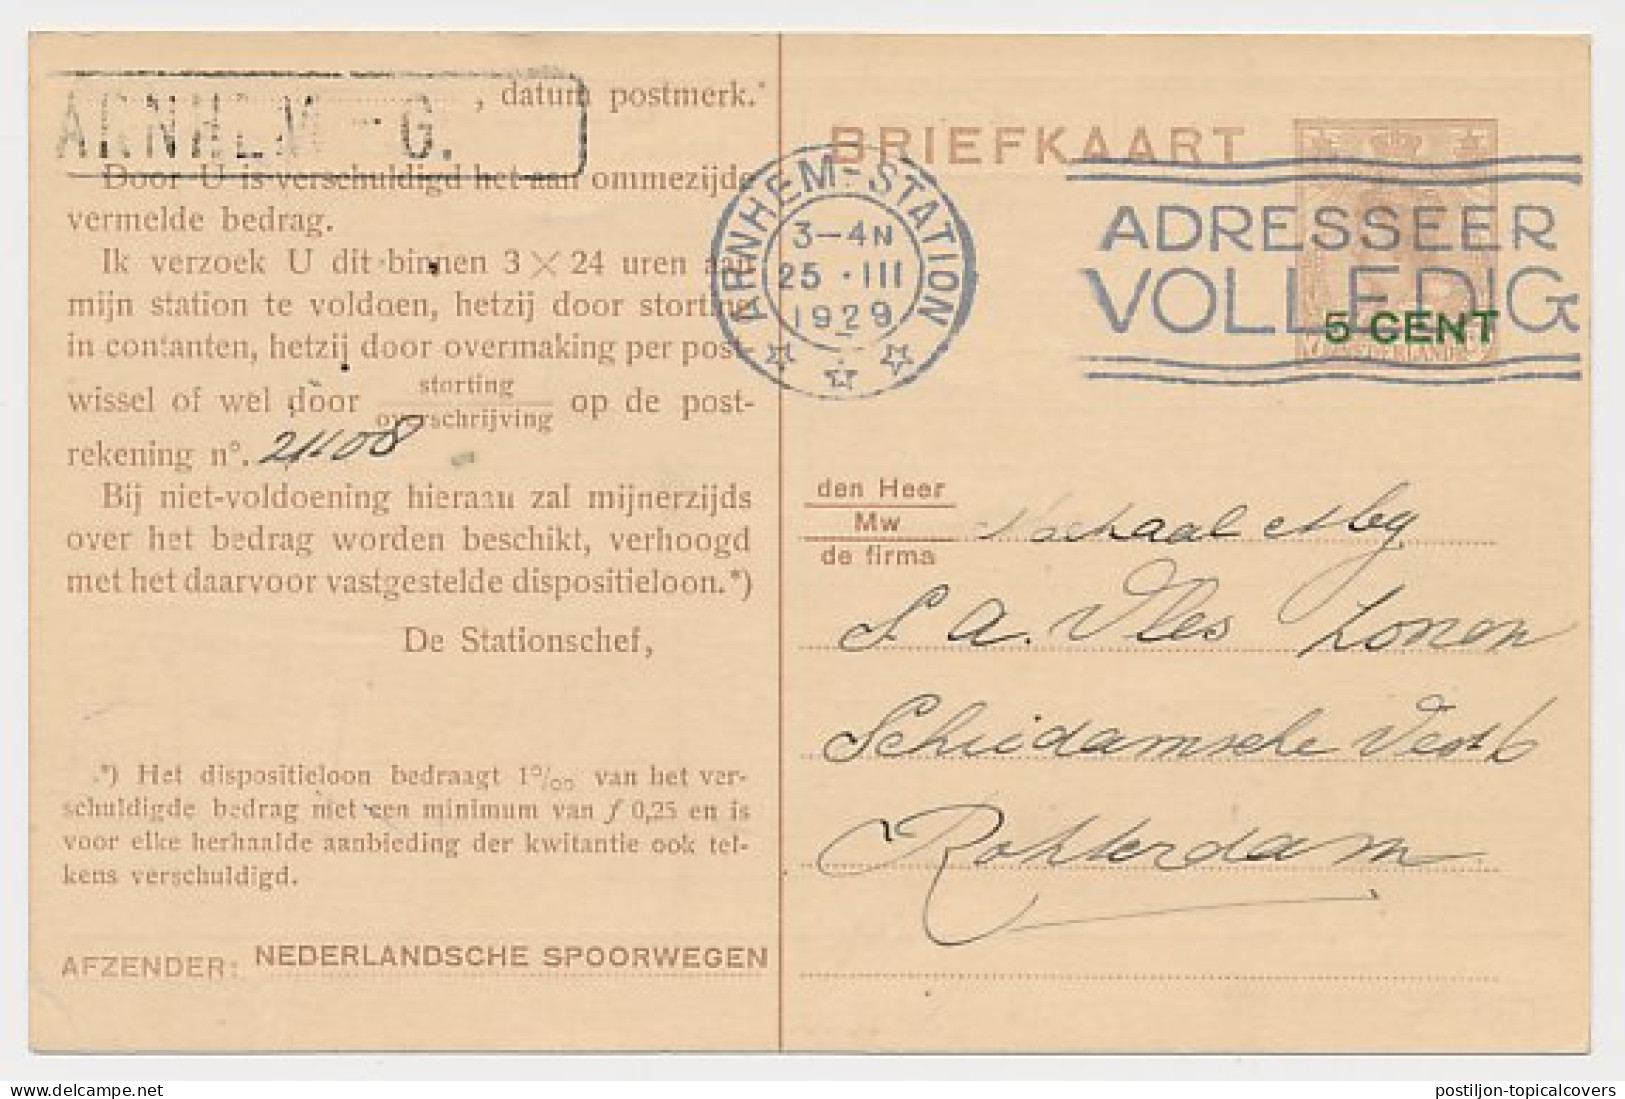 ARNHEM - G.
, datum postmerk.*
Door U is verschuldigd het aan ommezijde
vermelde bedrag.
Ik verzoek U dit binnen 3 × 24 uren aan
mijn station te voldoen, hetzij door storting
in contanten, hetzij door overmaking per post-
wissel of wel door storting/overschrijving op de post-
rekening n°. 21108
Bij niet-voldoening hieraan zal mijnerzijds
over het bedrag worden beschikt, verhoogd
met het daarvoor vastgestelde dispositieloon.*)
De Stationschef,
*) Het dispositieloon bedraagt 1°/₀₀ van het ver-
schuldigde bedrag met een minimum van ƒ 0,25 en is
voor elke herhaalde aanbieding der kwitantie ook tel-
kens verschuldigd.
AFZENDER: NEDERLANDSCHE SPOORWEGEN
BRIEFKAART
ARNHEM-STATION
3-4N
25 · III
1929
ADRESSEER
VOLLEDIG
5 CENT
NEDERLAND
den Heer
Mw
de firma
S. A. Vles Zonen
Schiedamsche Vest 6
Rotterdam
postiljon-topicalcovers
Copyright delcampe.net